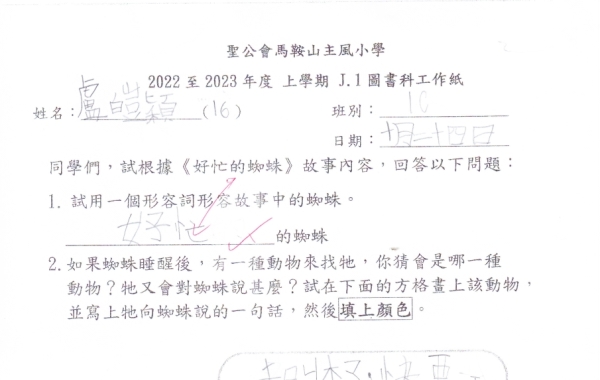 聖公會馬鞍山主風小學
2022 至 2023 年度 上學期 J.1 圖書科工作紙
姓名：盧皚穎(16) 班別：1C
日期：十月二十四日
同學們，試根據《好忙的蜘蛛》故事內容，回答以下問題：
1. 試用一個形容詞形容故事中的蜘蛛。
好忙的蜘蛛
2. 如果蜘蛛睡醒後，有一種動物來找牠，你猜會是哪一種
動物？牠又會對蜘蛛說甚麼？試在下面的方格畫上該動物，
並寫上牠向蜘蛛說的一句話，然後填上顏色。